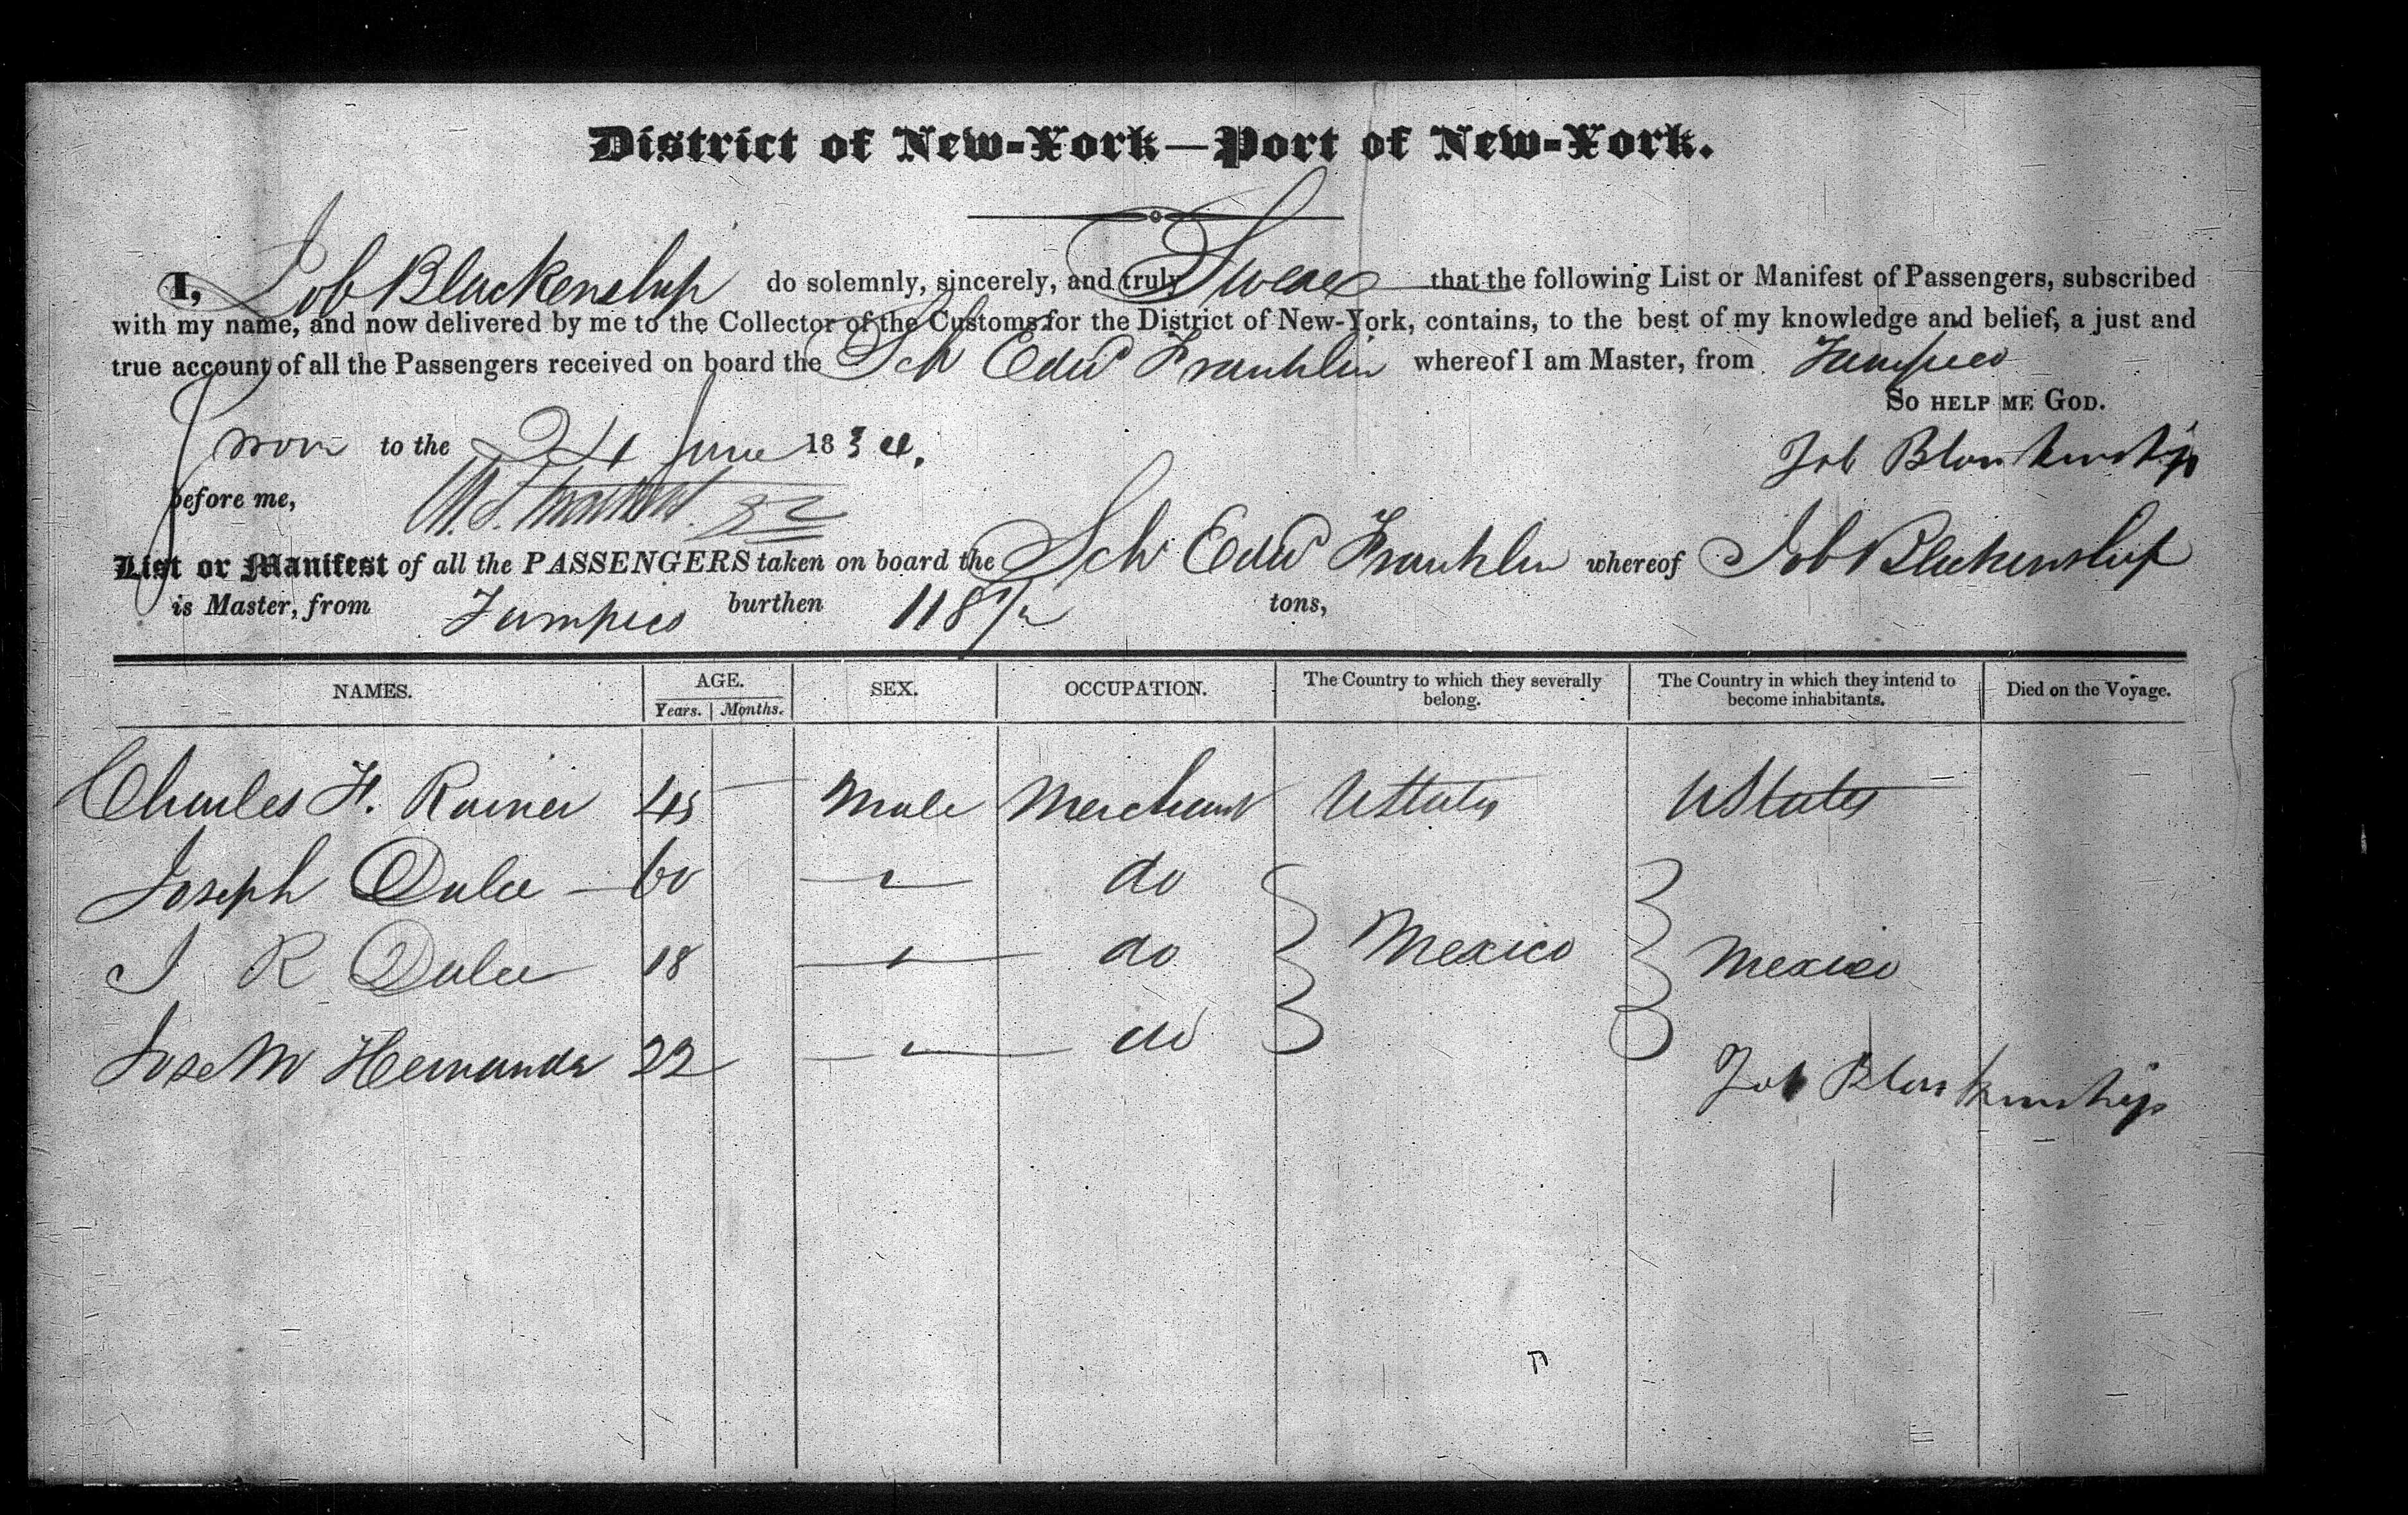 District of New-York—Port of New-York.
I, Job Blackenship do solemnly, sincerely, and truly Swear that the following List or Manifest of Passengers, subscribed
with my name, and now delivered by me to the Collector of the Customs for the District of New-York, contains, to the best of my knowledge and belief, a just and
true account of all the Passengers received on board the Sch Edwd Franklin whereof I am Master, from Tampico
So help me God.
Sworn to the 24 June 1834.
Job Blankenship
before me,
List or Manifest of all the PASSENGERS taken on board the Schr Edwd Franklin whereof Job Blackenship
is Master, from Tampico burthen 118 tons,
NAMES. AGE. SEX. OCCUPATION. The Country to which they severally belong. The Country in which they intend to become inhabitants. Died on the Voyage.
Years. Months.
Charles H. Rainer 45 Male Merchant UStates UStates
Joseph Dulce 60 do
J R Dulce 18 do Mexico Mexico
Jose M Hernandz 22 do
Job Blankenship